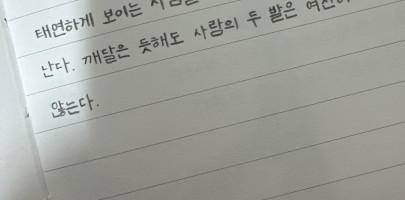 태연하게 보이는
난다. 깨달은 듯해도 사람의 두 발은
않는다.